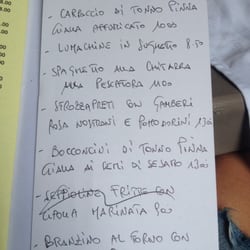 - CARPACCIO DI TONNO PINNA
GIALLA AFFUMICATO 10.00
- LUMACHINE IN SUGHETTO 8.50
- SPAGHETTO ALLA CHITARRA
ALLA PESCATORA 11.00
- STROZZAPRETI CON GAMBERI
ROSA NOSTRANI E POMODORINI 13.00
- BOCCONCINI DI TONNO PINNA
GIALLA AI SEMI DI SESAMO 13.00
- SEPPIOLINE FRITTE CON
CIPOLLA MARINATA 9.00
- BRANZINO AL FORNO CON